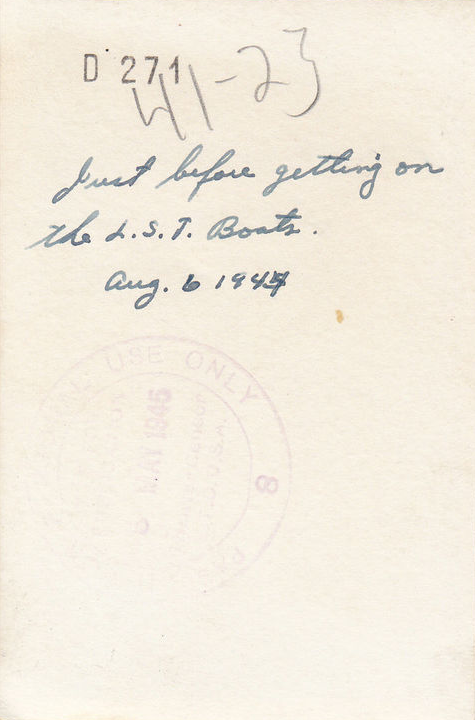 D 271
41-23
Just before getting on
the L.S.T. Boats.
Aug. 6 1944
USE ONLY
MAY 1945
8